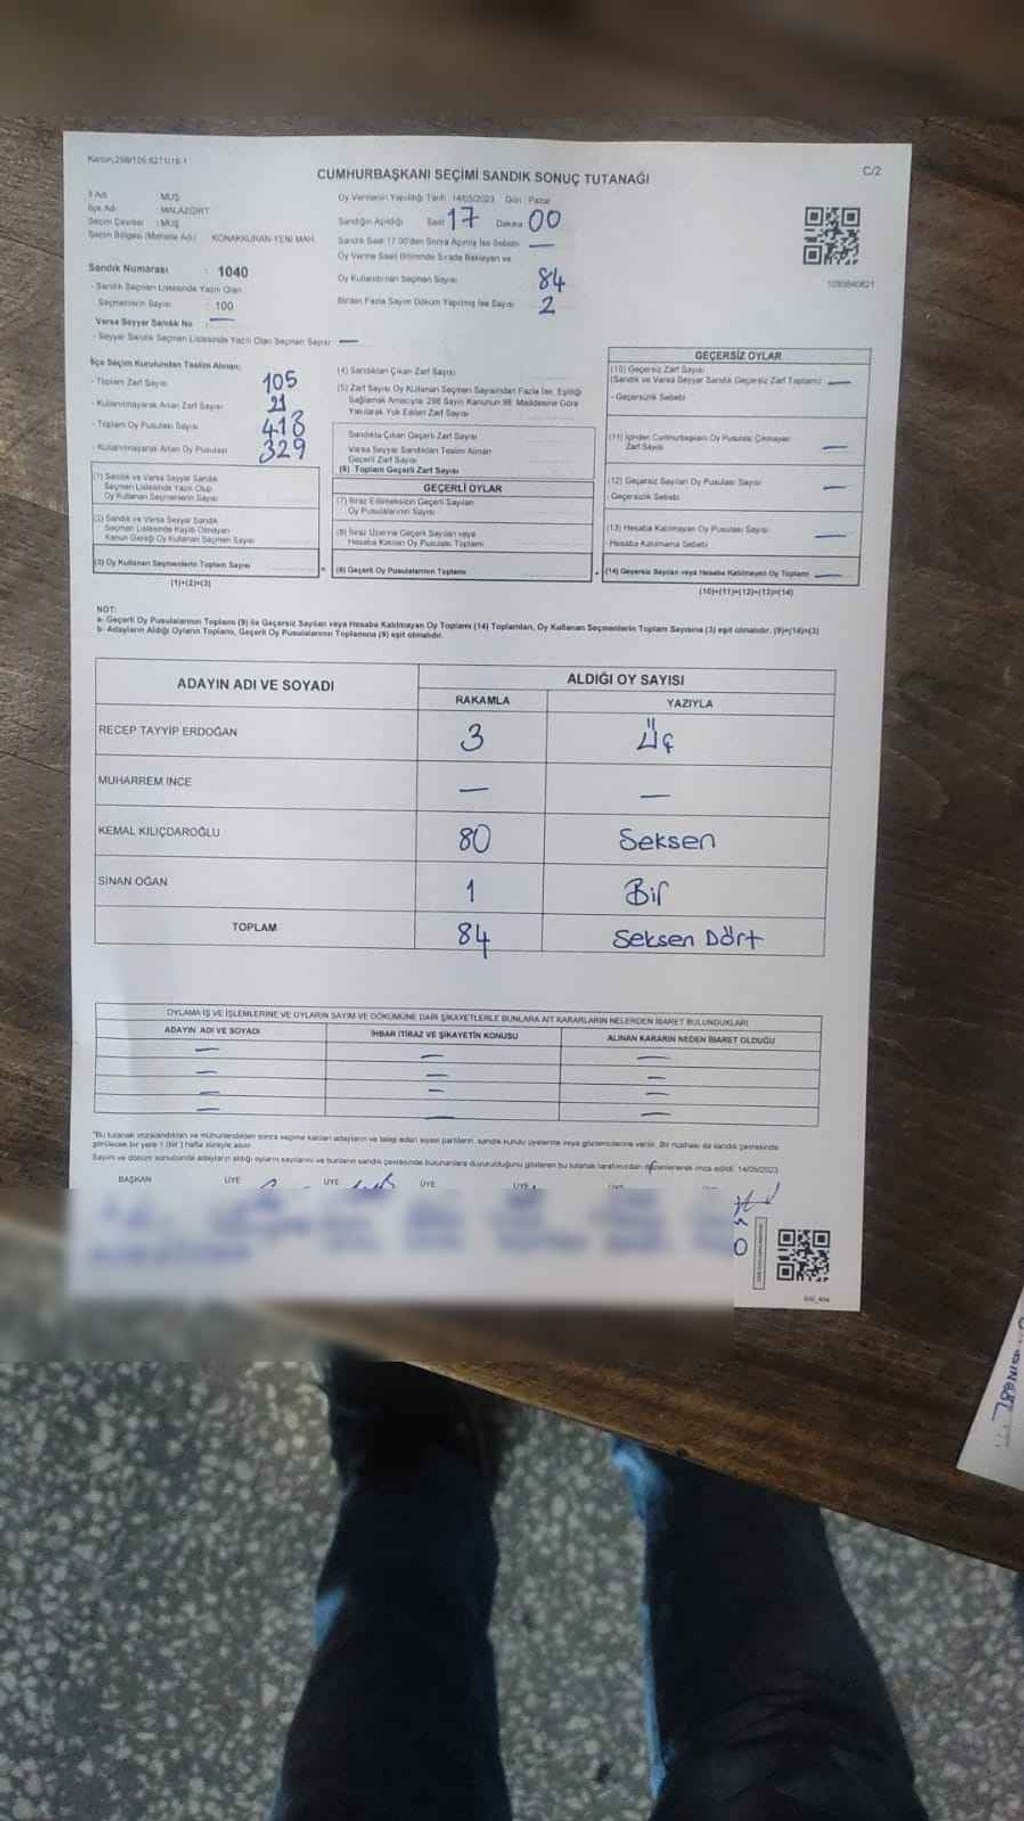 Kanun:298/105 6271/18-1
C/2
CUMHURBAŞKANI SEÇİMİ SANDIK SONUÇ TUTANAĞI
İl Adı : MUŞ
İlçe Adı : MALAZGİRT
Seçim Çevresi : MUŞ
Seçim Bölgesi (Mahalle Adı) : KONAKKURAN-YENİ MAH.
Sandık Numarası : 1040
- Sandık Seçmen Listesinde Yazılı Olan
Seçmenlerin Sayısı : 100
Varsa Seyyar Sandık No : —
- Seyyar Sandık Seçmen Listesinde Yazılı Olan Seçmen Sayısı : —
Oy Vermenin Yapıldığı Tarih : 14/05/2023 Gün : Pazar
Sandığın Açıldığı Saat 17 Dakika 00
Sandık Saat 17.00'den Sonra Açılmış İse Sebebi —
Oy Verme Saati Bitiminde Sırada Bekleyen ve
Oy Kullandırılan Seçmen Sayısı 84
Birden Fazla Sayım Döküm Yapılmış İse Sayısı 2
İlçe Seçim Kurulundan Teslim Alınan;
- Toplam Zarf Sayısı 105
- Kullanılmayarak Artan Zarf Sayısı 21
- Toplam Oy Pusulası Sayısı 413
- Kullanılmayarak Artan Oy Pusulası 329
(1) Sandık ve Varsa Seyyar Sandık
Seçmen Listesinde Yazılı Olup
Oy Kullanan Seçmenlerin Sayısı
(2) Sandık ve Varsa Seyyar Sandık
Seçmen Listesinde Kayıtlı Olmayan
Kanun Gereği Oy Kullanan Seçmen Sayısı
(3) Oy Kullanan Seçmenlerin Toplam Sayısı
(1)+(2)=(3)
(4) Sandıktan Çıkan Zarf Sayısı
(5) Zarf Sayısı Oy Kullanan Seçmen Sayısından Fazla İse, Eşitliği
Sağlamak Amacıyla 298 Sayılı Kanunun 98. Maddesine Göre
Yakılarak Yok Edilen Zarf Sayısı
Sandıkta Çıkan Geçerli Zarf Sayısı
Varsa Seyyar Sandıktan Teslim Alınan
Geçerli Zarf Sayısı
(6) Toplam Geçerli Zarf Sayısı
GEÇERLİ OYLAR
(7) İtiraz Edilmeksizin Geçerli Sayılan
Oy Pusulalarının Sayısı
(8) İtiraz Üzerine Geçerli Sayılan veya
Hesaba Katılan Oy Pusulası Toplamı
(9) Geçerli Oy Pusulalarının Toplamı
GEÇERSİZ OYLAR
(10) Geçersiz Zarf Sayısı
(Sandık ve Varsa Seyyar Sandık Geçersiz Zarf Toplamı) —
- Geçersizlik Sebebi
(11) İçinden Cumhurbaşkanı Oy Pusulası Çıkmayan
Zarf Sayısı —
(12) Geçersiz Sayılan Oy Pusulası Sayısı —
- Geçersizlik Sebebi
(13) Hesaba Katılmayan Oy Pusulası Sayısı —
Hesaba Katılmama Sebebi
(14) Geçersiz Sayılan veya Hesaba Katılmayan Oy Toplamı —
(10)+(11)+(12)+(13)=(14)
NOT:
a- Geçerli Oy Pusulalarının Toplamı (9) ile Geçersiz Sayılan veya Hesaba Katılmayan Oy Toplamı (14) Toplamları, Oy Kullanan Seçmenlerin Toplam Sayısına (3) eşit olmalıdır. (9)+(14)=(3)
b- Adayların Aldığı Oyların Toplamı, Geçerli Oy Pusulalarının Toplamına (9) eşit olmalıdır.
ADAYIN ADI VE SOYADI
ALDIĞI OY SAYISI
RAKAMLA YAZIYLA
RECEP TAYYİP ERDOĞAN 3 Üç
MUHARREM İNCE — —
KEMAL KILIÇDAROĞLU 80 Seksen
SİNAN OĞAN 1 Bir
TOPLAM 84 Seksen Dört
OYLAMA İŞ VE İŞLEMLERİNE VE OYLARIN SAYIM VE DÖKÜMÜNE DAİR ŞİKAYETLERLE BUNLARA AİT KARARLARIN NELERDEN İBARET BULUNDUKLARI
ADAYIN ADI VE SOYADI İHBAR İTİRAZ VE ŞİKAYETİN KONUSU ALINAN KARARIN NEDEN İBARET OLDUĞU
— — —
— — —
— — —
— — —
"Bu tutanak imzalandıktan ve mühürlendikten sonra seçime katılan adayların ve talep eden siyasi partilerin sandık kurulu üyelerine veya gözlemcilerine verilir. Bir nüshası da sandık çevresinde
görülecek bir yere 1 (bir) hafta süreyle asılır.
Sayım ve döküm sonucunda adayların aldığı oyların sayılarını ve bunların sandık çevresinde bulunanlara duyurulduğunu gösteren bu tutanak tarafımızdan düzenlenerek imza edildi. 14/05/2023
BAŞKAN ÜYE ÜYE ÜYE ÜYE